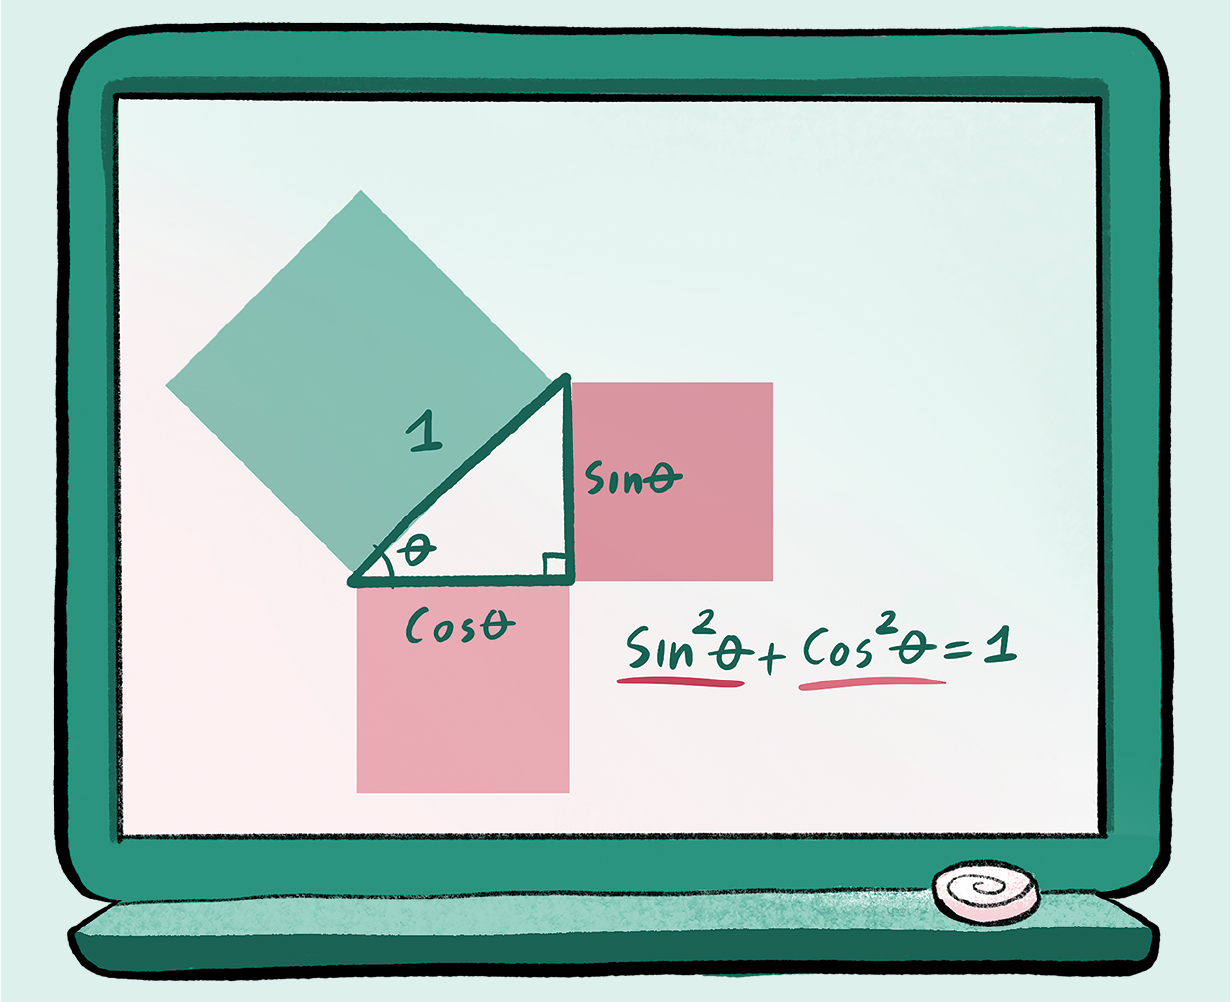 1
Sinθ
θ
Cosθ
Sin²θ + Cos²θ = 1